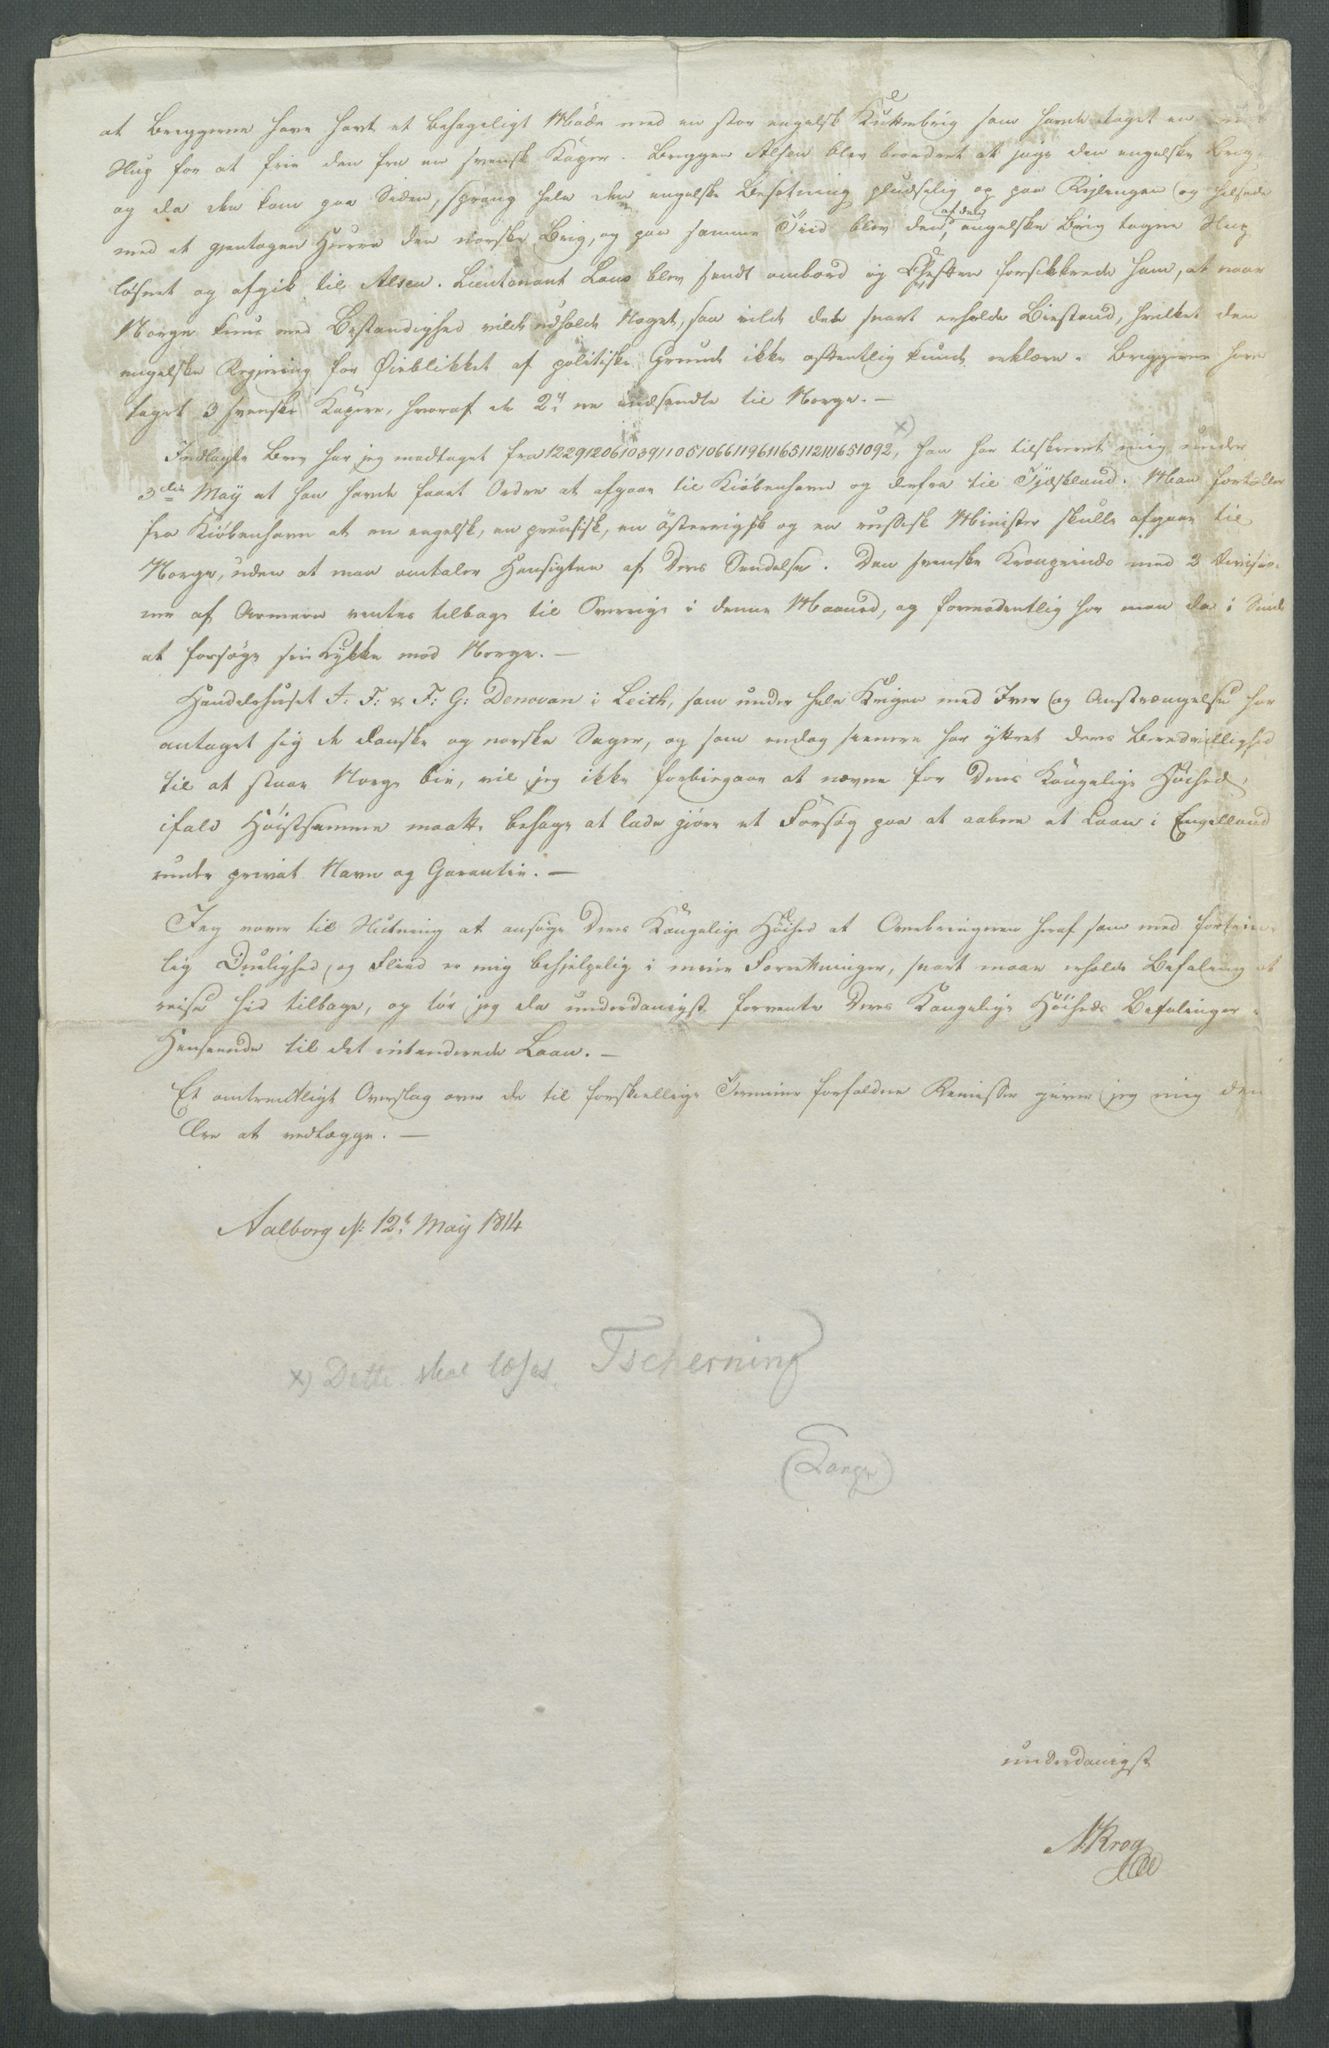 at Briggerne have havt et behageligt Møde med en stor engelsk Kutterbrig som havde taget en
Slup for at frie den fra en svensk Kaper. Briggen Alsen blev beordret at jage den engelske Brig,
og da den kom paa Siden, sprang hele den engelske Besætning pludselig op paa Rejlingen og hilsede
med et gjentagen Hurra den norske Brig, og paa samme Tiid blev den af den engelske Brig tagne Slup
løsnet og afgik til Alsen. Lieutenant Lous blev sendt ombord og Cheffen forsikkrede ham, at naar
Norge kuns med Bestandighed vilde udholde Noget, saa vilde det snart erholde Biestand, hvilket den
engelske Regjering for Øieblikket af politiske Grunde ikke offentlig kunde erklære. Briggerne have
taget 3 svenske Kapere, hvoraf de 2de ere indsendte til Norge. —
Indlagte Brev har jeg modtaget fra 1229120610391105106611961165112111651092, x) han har tilskrevet mig under
3die May at han havde faaet Ordre at afgaae til Kiöbenhavn og derfra til Tydskland. Man fortæller
fra Kiöbenhavn at en engelsk, en preusisk, en österrigsk og en russisk Minister skulle afgaae til
Norge, uden at man omtaler Hensigten af Deres Sendelse. Den svenske Kronprinds med 2 Divisio-
ner af Armeen ventes tilbage til Sverrig i denne Maaned, og formodentlig har man da i Sinde
at forsøge sin Lykke mod Norge. —
Handelshuset J: F: & F: G: Donovan i Leith, som under hele Krigen med Iver og Anstrængelse har
antaget sig de danske og norske Sager, og som endog senere har yttret deres Beredvillighed
til at staae Norge bie, vil jeg ikke forbiegaae at nævne for Deres Kongelige Höihed,
ifald Höistsamme maatte behage at lade gjöre et Forsøg paa at aabne et Laan i Engelland
under privat Navn og Garantie. —
Jeg vover til Slutning at ansøge Deres Kongelige Höihed at Overbringeren heraf som med fortrin-
lig Duelighed og Fliid er mig behjelpelig i mine Forretninger, snart maae erholde Befaling at
reise hid tilbage, og tør jeg da underdanigst forvente Deres Kongelige Höiheds Befalinger i
Henseende til det intenderede Laan. —
Et omtrentligt Overslag over de til forskiellige Terminer forfaldne Remisser giver jeg mig den
Ære at vedlægge. —
Aalborg d: 12t May 1814
x) Dette skal læses. Tscherning
(Lange)
underdanigst
NKrog